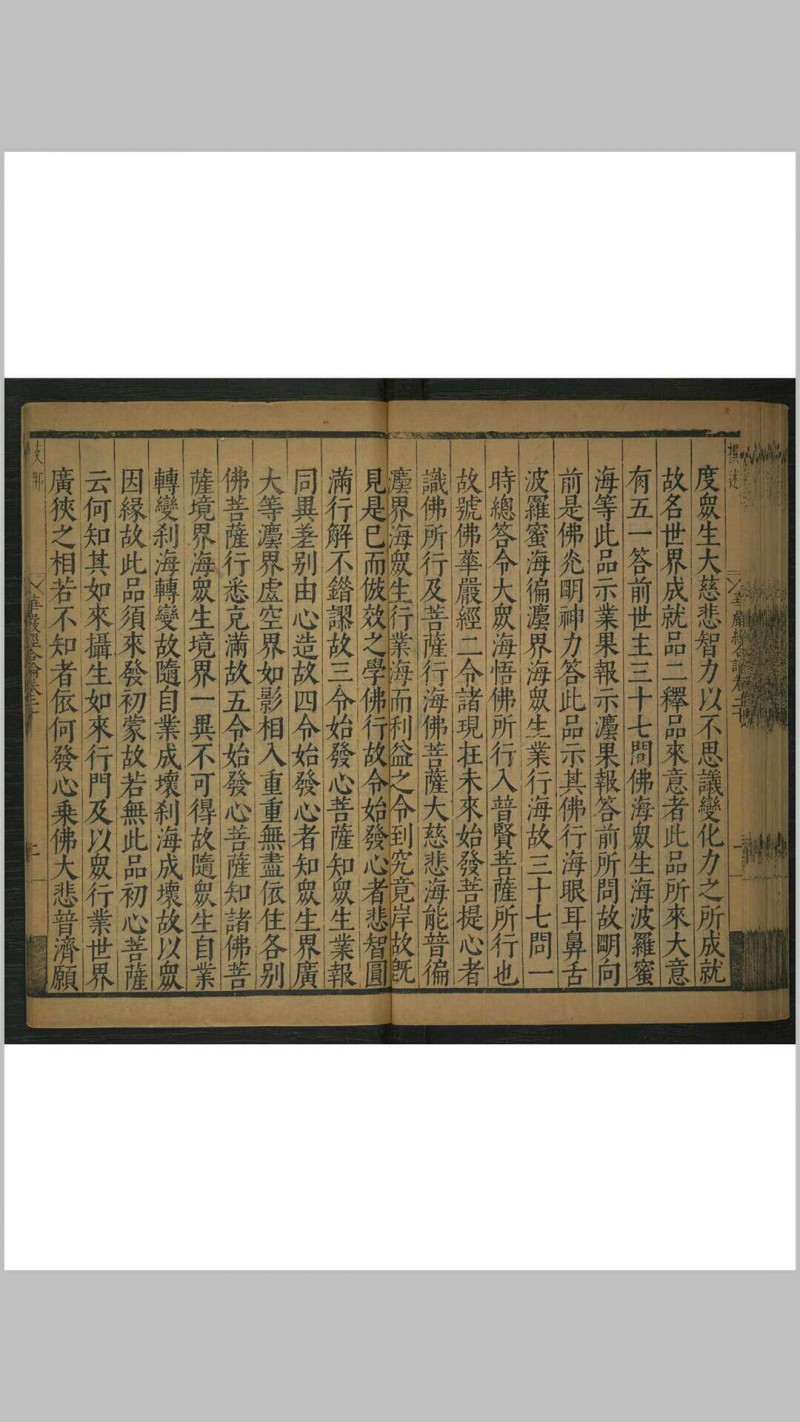 度眾生大慈悲智力以不思議變化力之所成就
故名世界成就品二釋品來意者此品所來大意
有五一答前世主三十七問佛海眾生海波羅蜜
海等此品示業果報示塵果報答前所問故明向
前是佛光明神力答此品示其佛行海眼耳鼻舌
波羅蜜海徧塵界海眾生業行海故三十七問一
時總答令大眾海悟佛所行入普賢菩薩所行也
故號佛華嚴經二令諸現在未來始發菩提心者
識佛所行及菩薩行海佛菩薩大慈悲海能普徧
塵界海眾生行業海而利益之令到究竟岸故旣
見是已而倣效之學佛行故令始發心者悲智圓
滿行解不錯謬故三令始發心菩薩知眾生業報
同異差别由心造故四令始發心者知眾生界廣
大等塵界虛空界如影相入重重無盡依住各别
佛菩薩行悉充滿故五令始發心菩薩知諸佛菩
薩境界海眾生境界一異不可得故隨眾生自業
轉變刹海轉變故隨自業成壞刹海成壞故以眾
因緣故此品須來發初蒙故若無此品初心菩薩
云何知其如來攝生如來行門及以眾行業世界
廣狹之相若不知者依何發心乘佛大悲普濟願
華嚴經合論卷二十